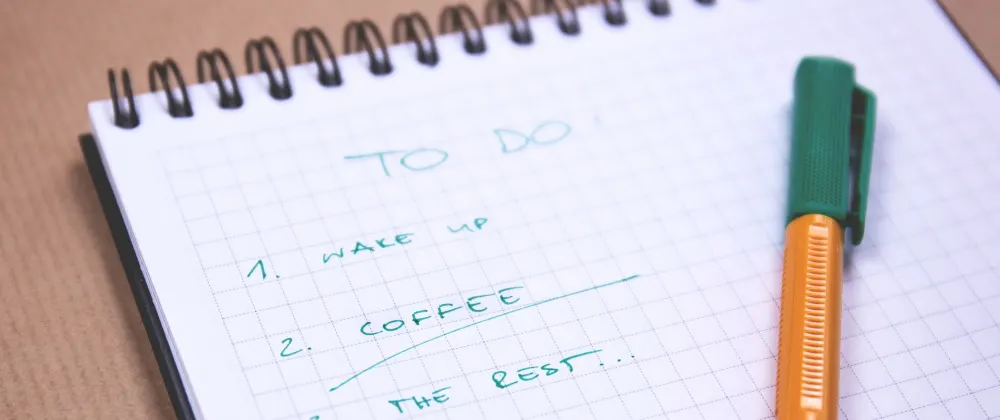 TO DO
1. WAKE UP
2. COFFEE
THE REST...